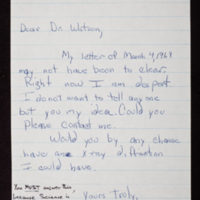 Dear Dr. Watson,
My letter of March 4, 1969
may not have been to clear.
Right now I am desport.
I do not want to tell any one
but you my idea. Could you
Please contact me.
Would you by any chance
have an x-ray difraton
I could have.
You MUST answer this
because "Science is
Yours Truly,